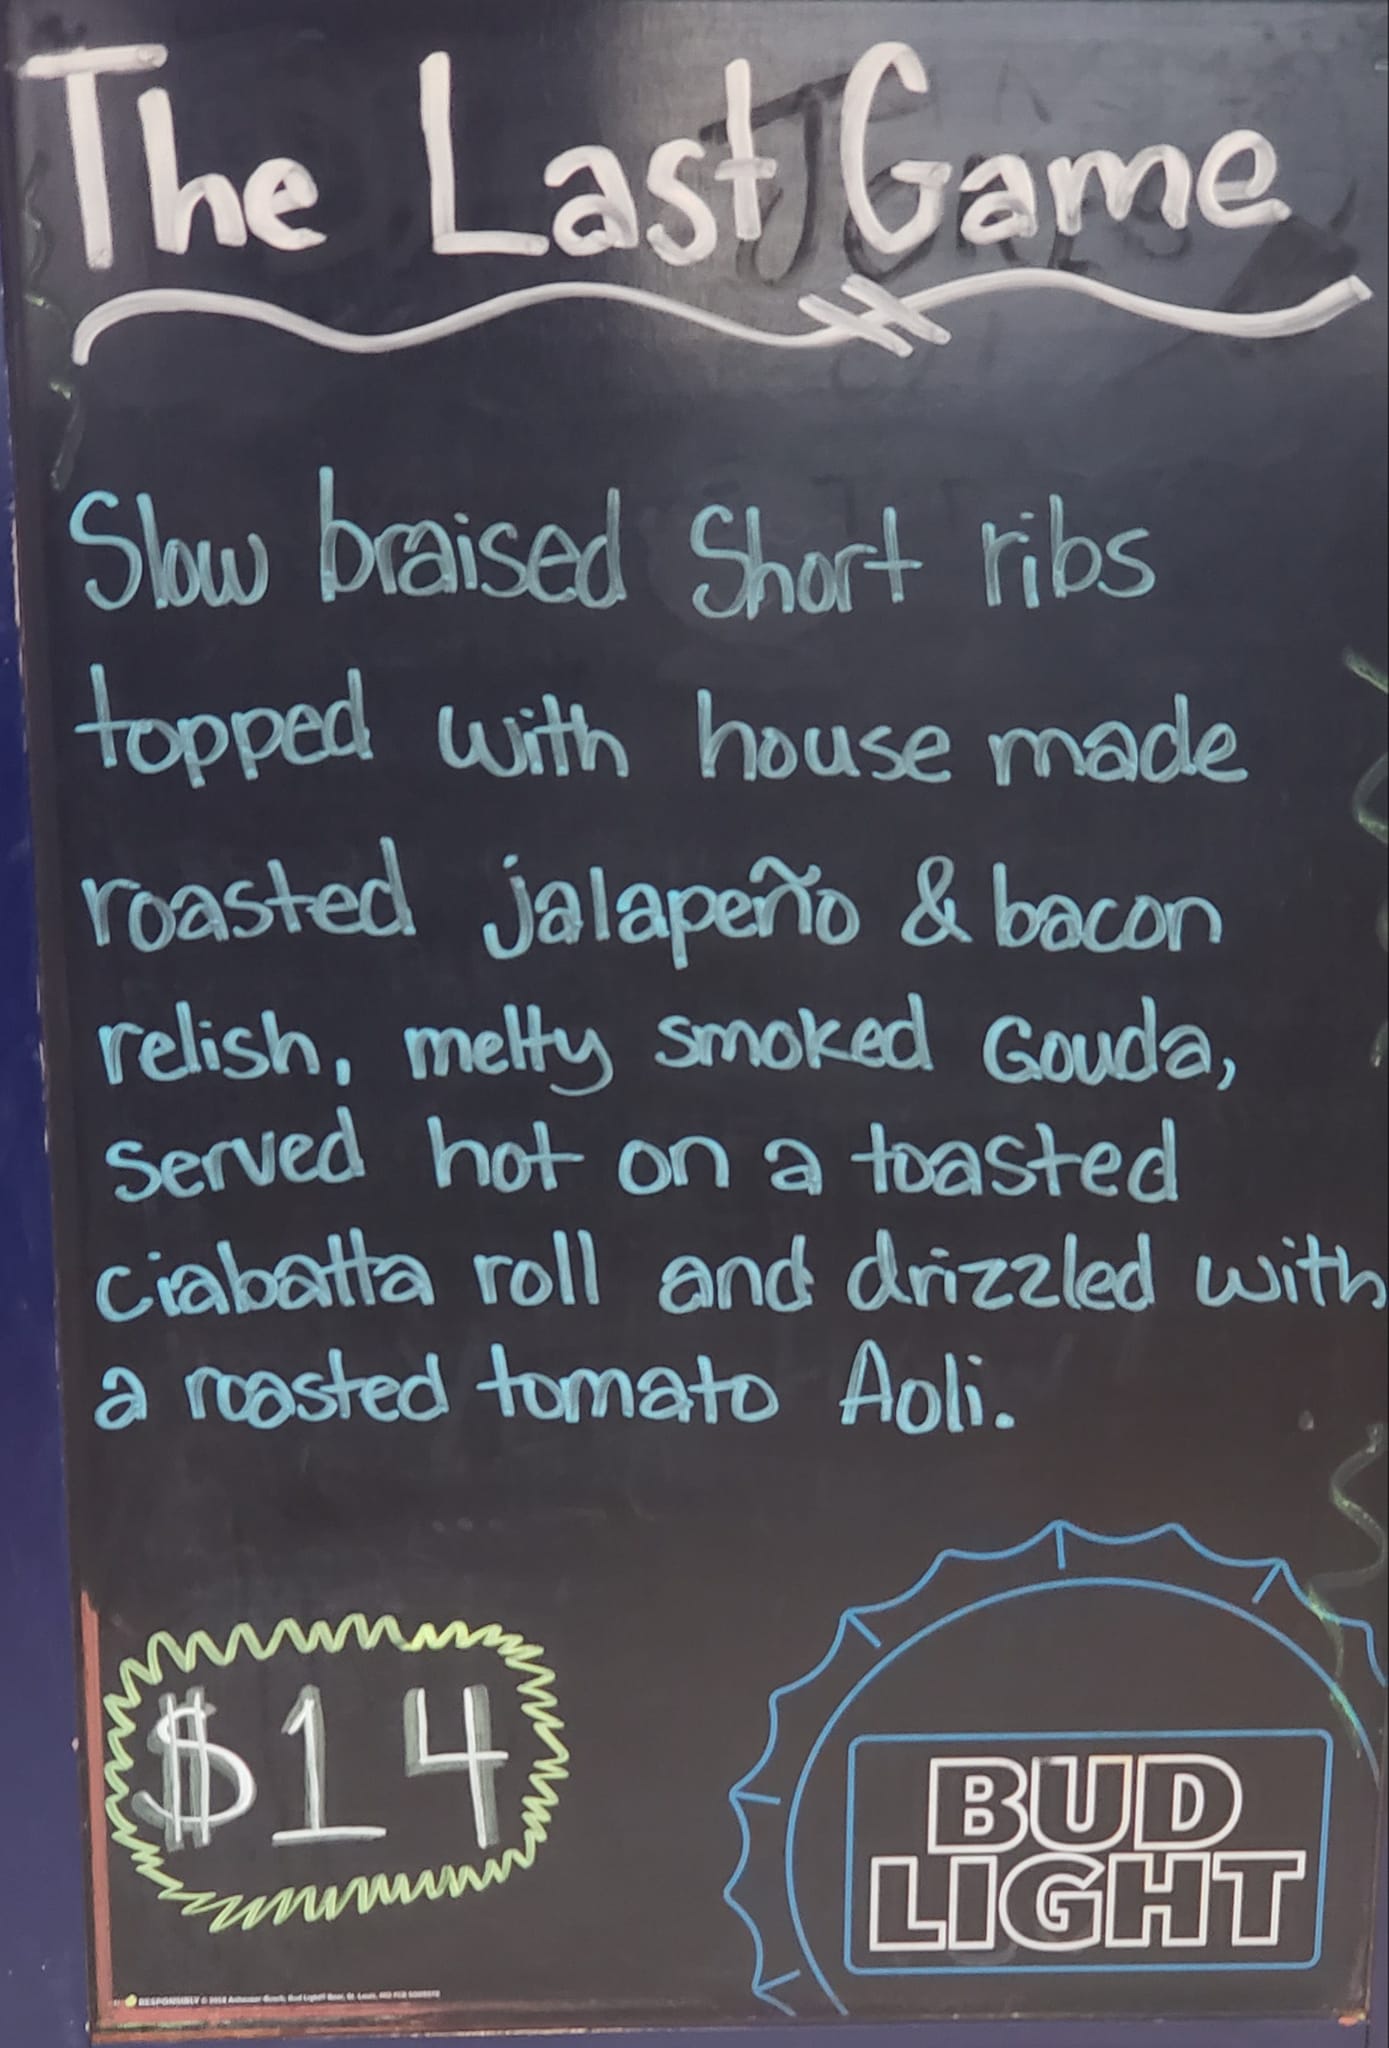 The Last Game
Slow braised Short ribs
topped with house made
roasted jalapeño & bacon
relish, melty smoked Gouda,
served hot on a toasted
ciabatta roll and drizzled with
a roasted tomato Aoli.
$14
BUD
LIGHT
RESPONSIBLY